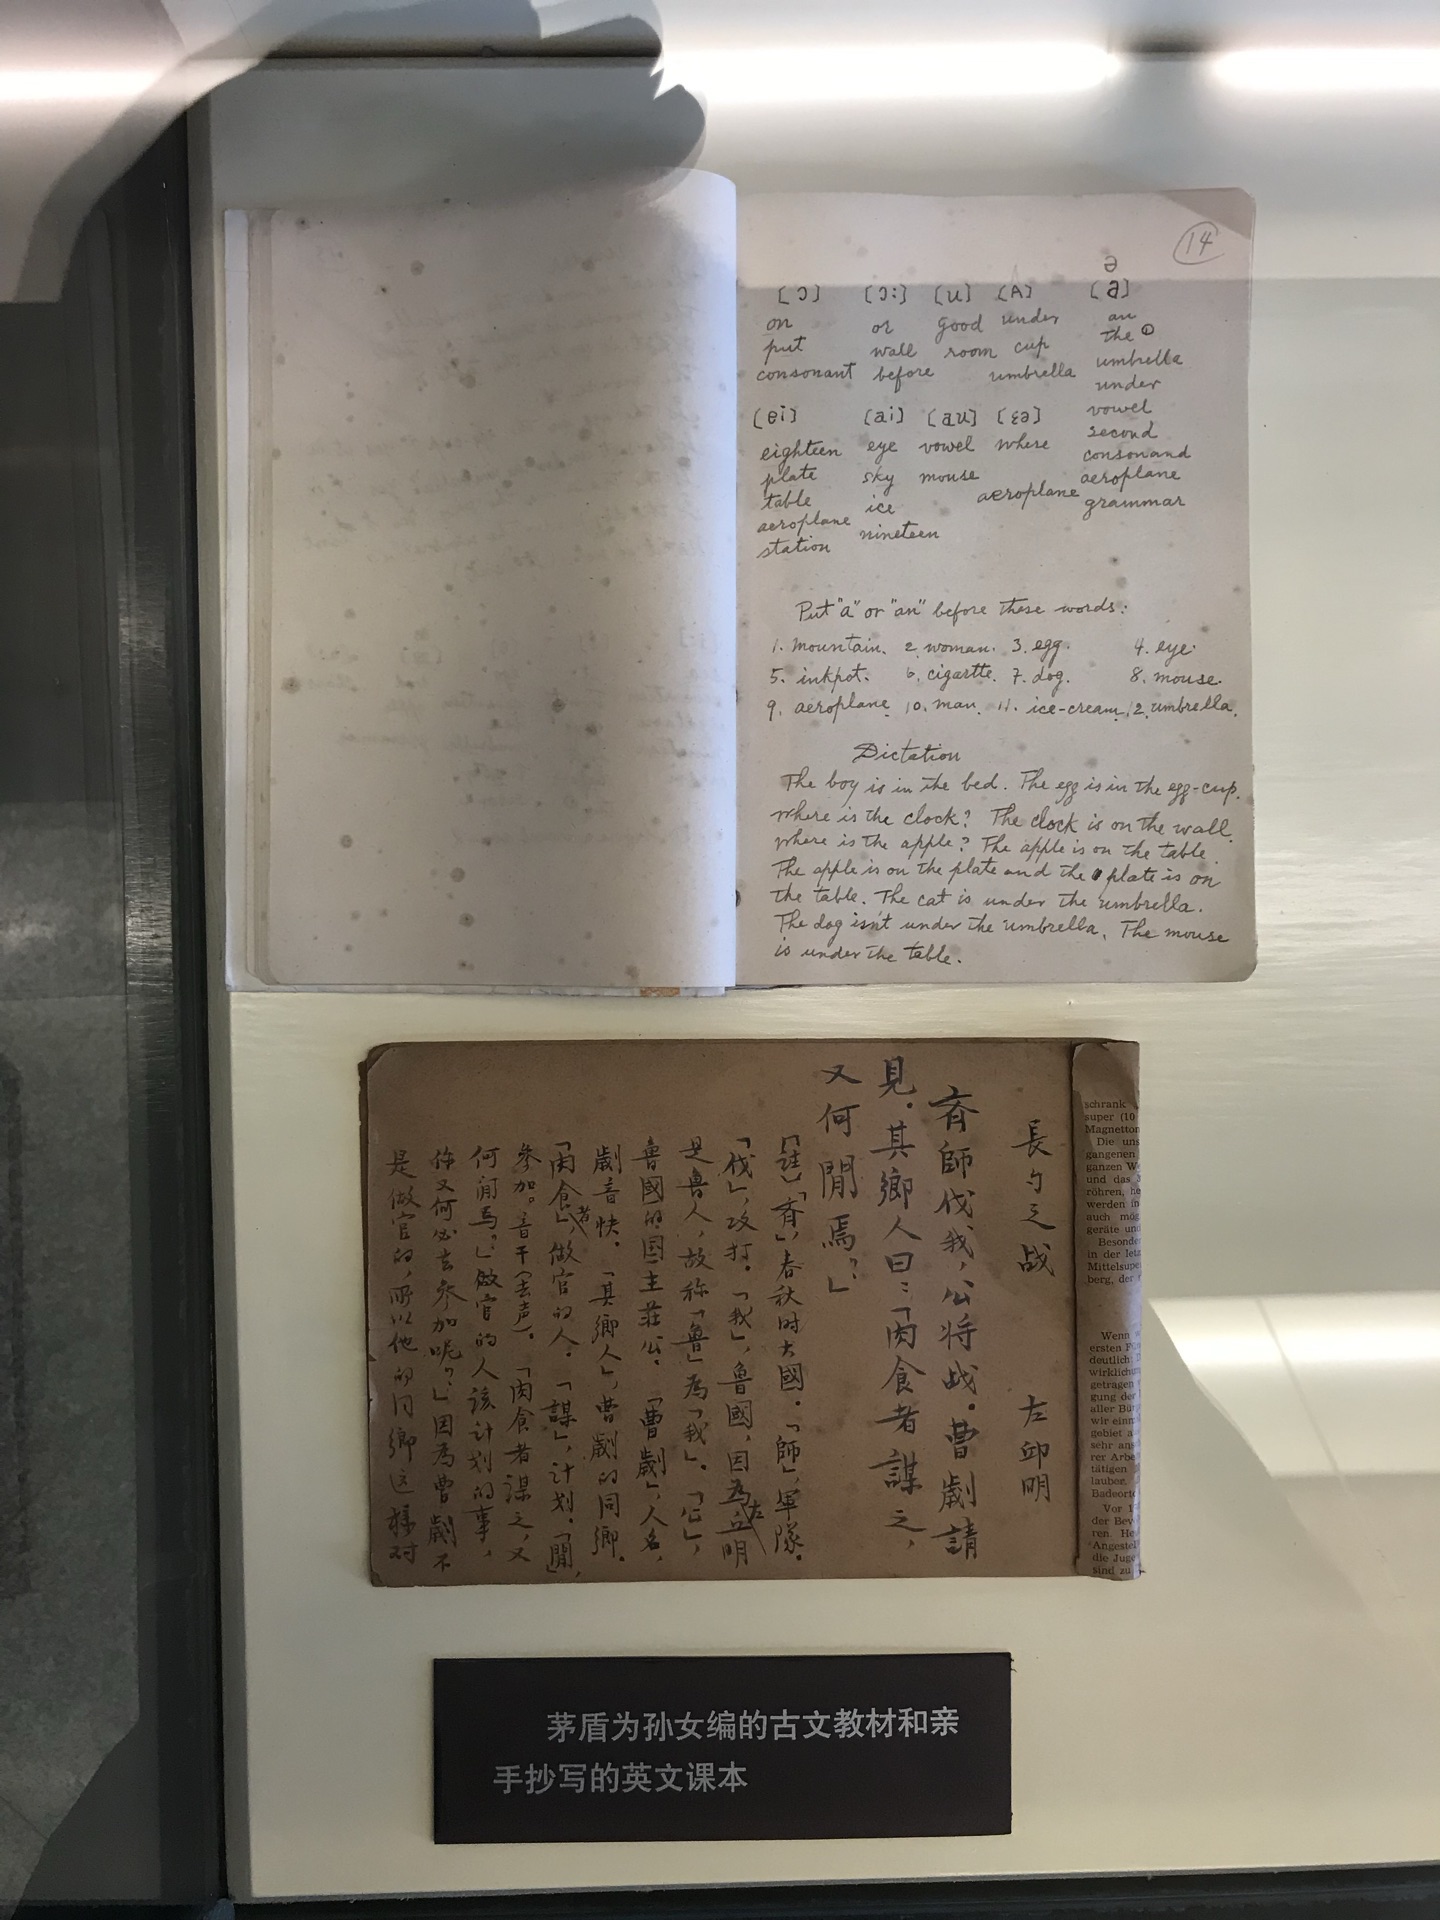 14
ə
[ɔ] [ɔ:] [u] [ʌ] [a]
on or good under an
put wall room cup the ①
consonant before umbrella umbrella
under
[ei] [ai] [au] [ɛə] vowel
eighteen eye vowel where second
plate sky mouse consonand
table ice aeroplane aeroplane
aeroplane nineteen grammar
station
Put "a" or "an" before these words:
1. mountain. 2. woman. 3. egg. 4. eye.
5. inkpot. 6. cigartte. 7. dog. 8. mouse.
9. aeroplane. 10. man. 11. ice-cream. 12. umbrella.
Dictation
The boy is in the bed. The egg is in the egg-cup.
where is the clock? The clock is on the wall.
where is the apple? The apple is on the table.
The apple is on the plate and the plate is on
the table. The cat is under the umbrella.
The dog isn't under the umbrella. The mouse
is under the table.
長勺之战 左邱明
斉師伐我，公将战。曹劌請
見。其鄉人曰：「肉食者謀之，
又何間焉？」
［註］「斉」，春秋时大國。「師」，軍隊。
「伐」，攻打。「我」，魯國，因為左丘明
是魯人，故称「魯」為「我」。「公」，
魯國的国主莊公。「曹劌」，人名，
劌音快。「其鄉人」，曹劌的同鄉。
「肉食者」，做官的人。「謀」，计划。「間」，
參加。音干（去声）。「肉食者谋之，又
何间焉。」做官的人该计划的事，
你又何必去參加呢？」因為曹劌不
是做官的，所以他的同鄉这樣对
schrank
super (10
Magnetton
Die uns
gangenen
ganzen W
und das
röhren, he
werden in
auch mög
geräte und
Besonde
in der letz
Mittelsupe
berg, der
Wenn
ersten Fü
deutlich:
wirklichu
getragen
gung der
aller Bür
wir einm
gebiet a
sehr an
rer Arbe
tätigen
lauber,
Badeorte
Vor 1
der Bev
ren. He
Angestel
die Juge
sind zu
茅盾为孙女编的古文教材和亲
手抄写的英文课本